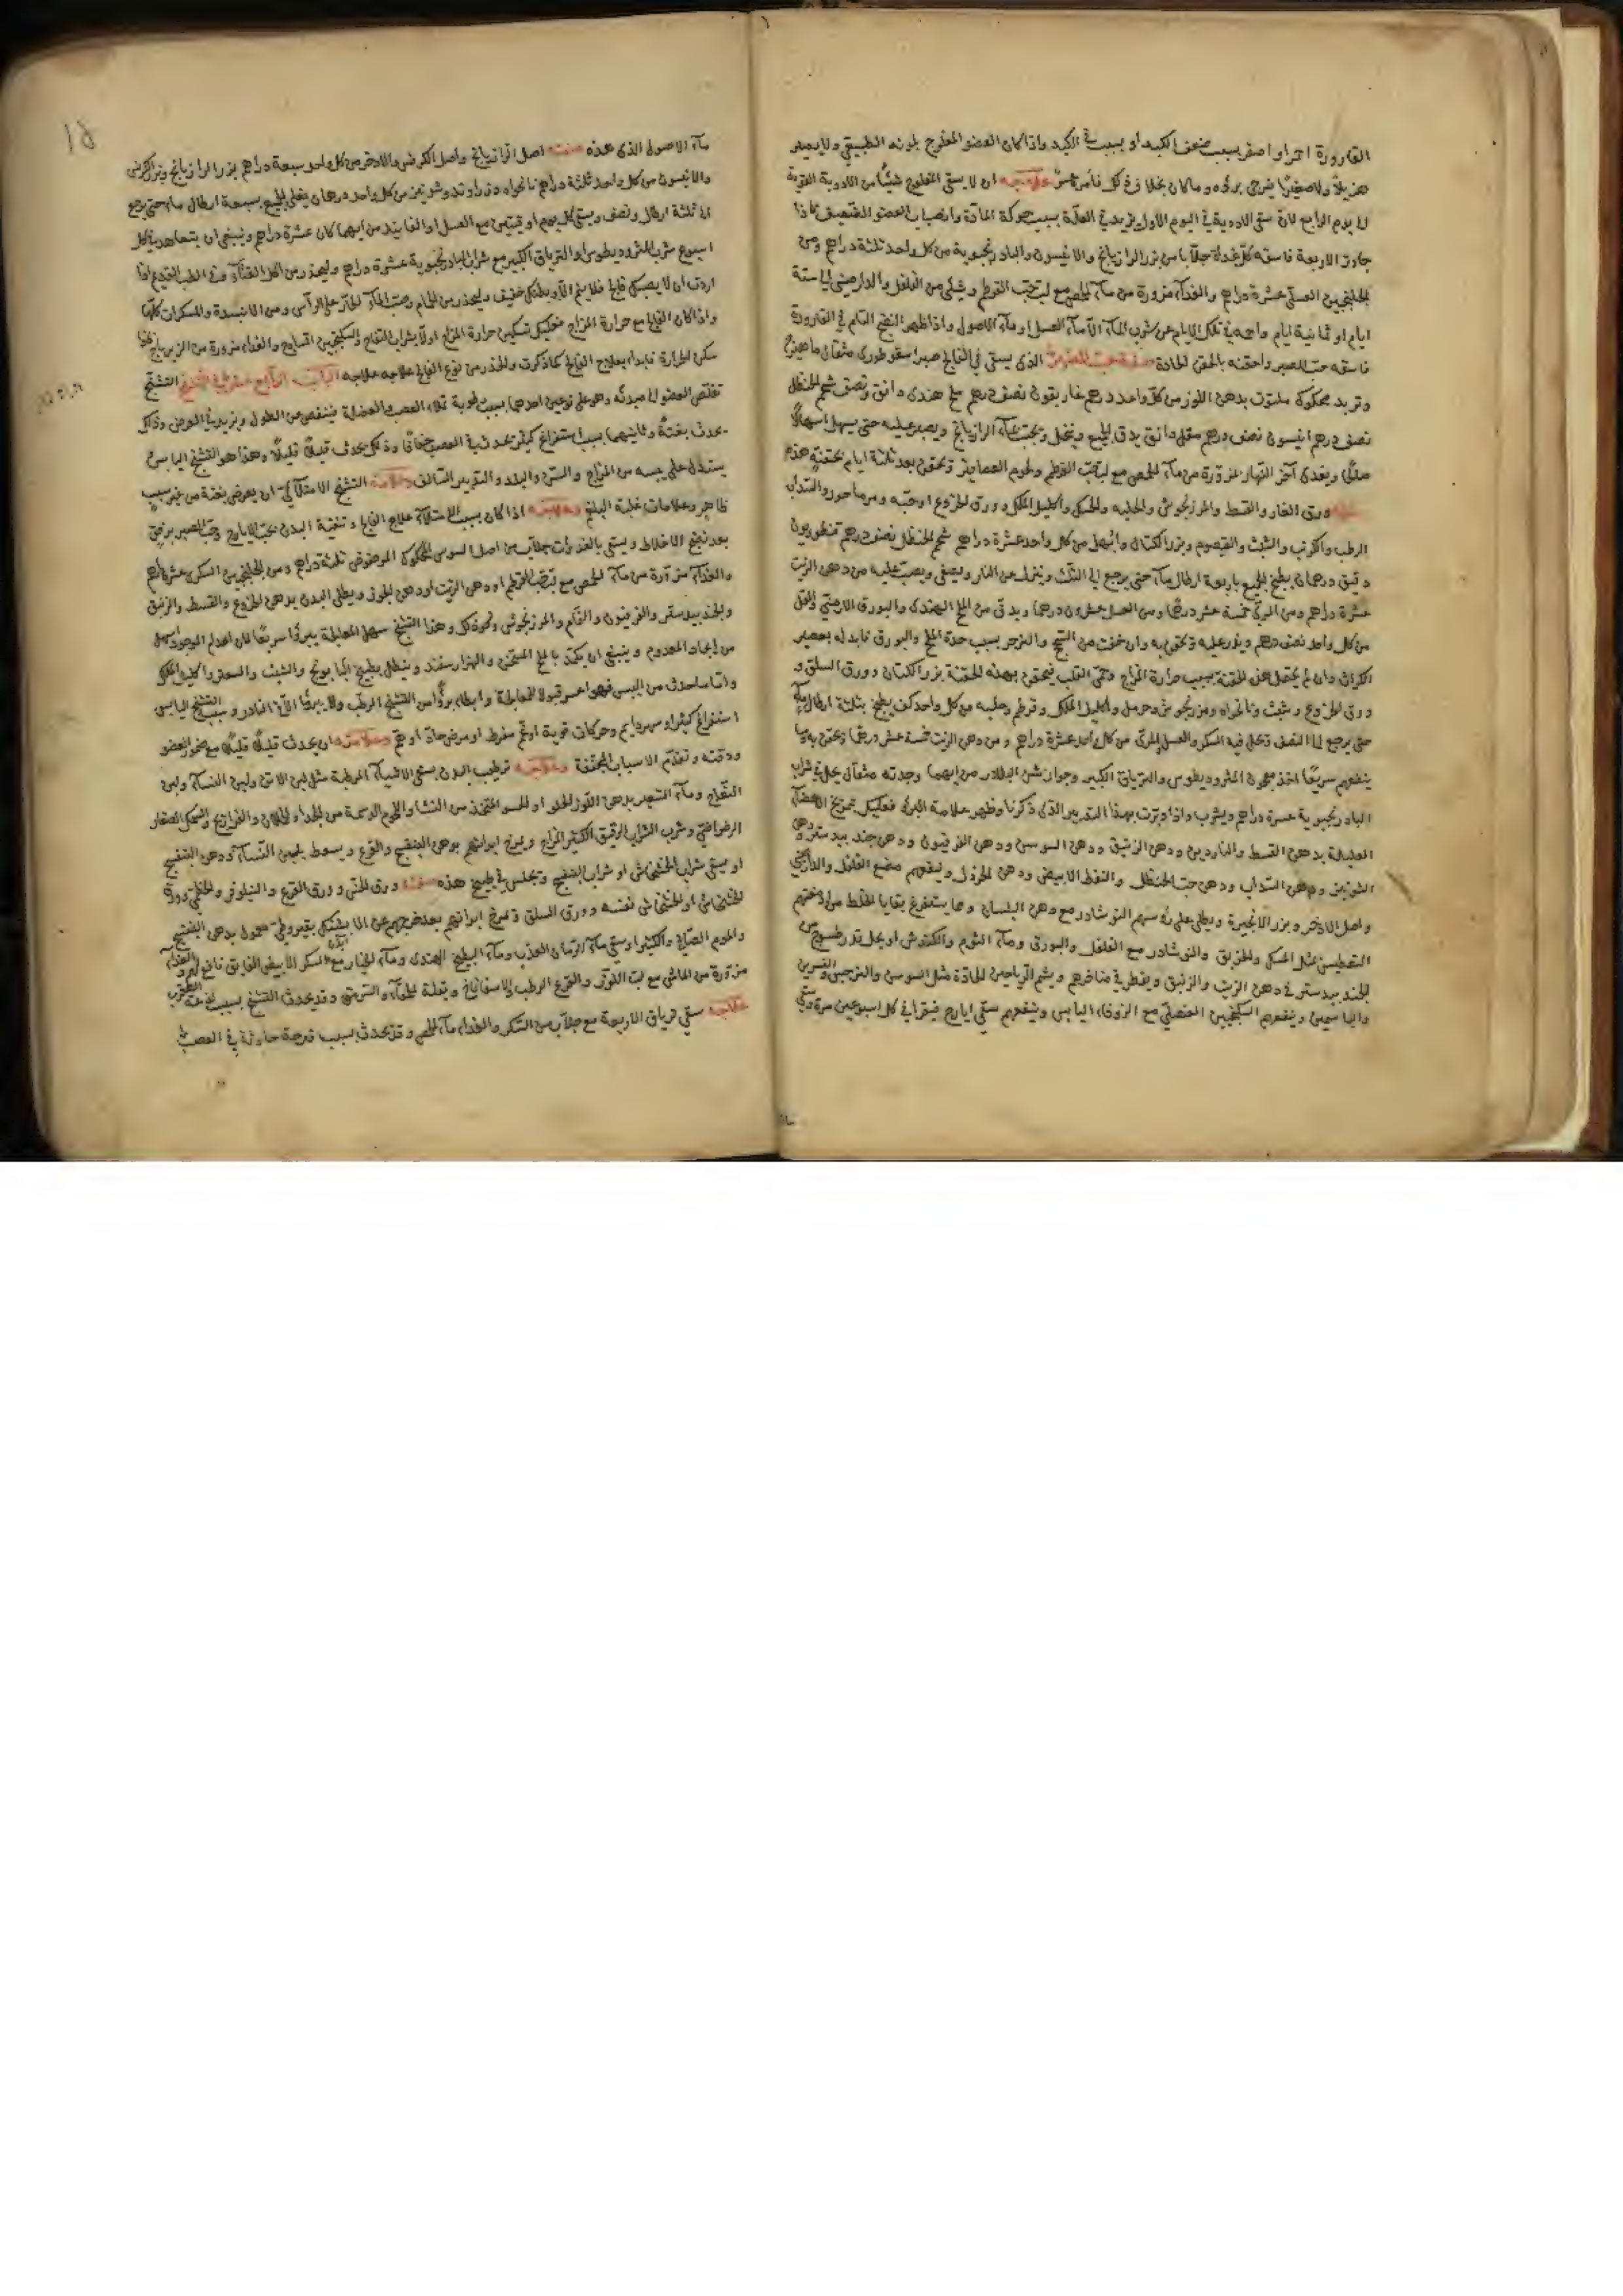 القارورة احمر او اصفر بسبب ضعف الكبد او بسبب في الكبد واذا كان العضو المفلوج بلونه الطبيعي ولا يصير
هزيلاً ولا صغيرًا فيرجى برؤه وما كان بخلاف ذلك فأمره عسر علاجه ان لا يسقى المفلوج شيئًا من الادوية القوية
الى يوم الرابع لان سقي الادوية في اليوم الأول يزيد في العلة بسبب حركة المادة وانصباب العضو الضعيف فاذا
جاوز الاربعة فاسقه كل غداة جلابا من بزر الرازيانج والانيسون والبادرنجبوية من كل واحد ثلثة دراهم ومن
الجلنجبين العسلي عشرة دراهم والغذاء مزورة من ماء الحمص مع لب حب القرطم وشئ من الفلفل والدارصيني الى ستة
ايام او ثمانية ايام واحمه في تلك الايام عن شرب الماء الا ماء العسل او ماء الاصول واذا ظهر النضج التام في القارورة
فاسقه حب الصبر واحقنه بالحقن الحادة صفة حب الصبر الذي يسقى في الفالج صبر اسقوطرى مثقال ماهيزج
وتربد محكوك ملتوت بدهن اللوز من كل واحد درهم غاريقون نصف درهم ملح هندى دانق ونصف شحم الحنظل
نصف درهم انيسون نصف درهم مقل دانق يدق الجميع وينخل ويحبب بماء الرازيانج ويصبر عليه حتى يسهل اسهالاً
صالحًا ويغذى آخر النهار بمزورة من ماء الحمص مع لب حب القرطم ولحوم العصافير وتحقن بعد ثلثة ايام بحقنة هذه
صفتها ورق الغار والقسط والمرزنجوش والحلبه والحسك واكليل الملك وورق الخروع او حبه ومرماحور والسداب
الرطب والكرنب والشبث والقيصوم وبزر الكتان وابهل من كل واحد عشرة دراهم شحم الحنظل نصف درهم قنطوريون
دقيق درهمان يطبخ الجميع باربعة ارطال ماء حتى يرجع الى الثلث وينزل عن النار ويصفى ويصب عليه من دهن الزيت
عشرة دراهم ومن المري خمسة عشر درهمًا ومن العسل عشرون درهما ويدق من الملح الهندى والبورق الارمني والمقل
من كل واحد نصف درهم ويذر عليه وتحقن به وان خفت من السحج والزحر بسبب حدة الملح والبورق فابدله بعصير
الكراث وان لم يحتمل هذه الحقنة بسبب حرارة المزاج وحمى القلب فيحقن بهذه الحقنة بزر الكتان وورق السلق و
ورق الخروع وشبث ونانخواه ومرزنجوش وحرمل واكليل الملك وقرطم وحلبه من كل واحد كف يطبخ بثلثة ارطال ماء
حتى يرجع الى النصف وتحل فيه السكر والعسل المري من كل واحد عشرة دراهم ومن دهن الزيت خمسة عشر درهمًا وتحقن به ومما
ينفعهم سريعًا اخذ معجون المثروديطوس والترياق الكبير وجوارشن البلادر من ايهما وجدته مثقال يحل في شراب
البادرنجبوية عشرة دراهم ويشرب واذا دبرت بهذا التدبير الذى ذكرنا وظهر علامة البرء فعليك بتمريخ الاعضاء
العليلة بدهن القسط والناردين ودهن الزنبق ودهن السوسن ودهن الفرفيون ودهن جند بيدستر ودهن
الشونيز ودهن السداب ودهن حب الحنظل والنفط الابيض ودهن الخردل وينفعهم مضغ الفلفل والدارصيني
واصل الاذخر وبزر الانجرة ويطلى على رؤسهم النوشادر مع دهن البلسان ومما يستفرغ بقايا الخلط من ادمغتهم
التعطيس مثل المسك والخربق والنوشادر مع الفلفل والبورق وماء الثوم والكندش او يحل قدر طسوج من
الجند بيدستر في دهن الزيت والزنبق ويقطر في مناخرهم ويشم الرياحين الحادة مثل السوسن والنرجس والنسرين
والياسمين وينفعهم السكنجبين العنصلي مع الزوفاء اليابس وينفعهم سقي ايارج فيقرا في كل اسبوعين مرة وسقي
ماء الاصول الذى هذه صفته اصل الرازيانج واصل الكرفس والاذخر من كل واحد سبعة دراهم بزر الرازيانج وبزر الكرفس
والانيسون من كل واحد ثلثة دراهم نانخواه وزراوند وشونيز من كل واحد درهمان يغلى الجميع بسبعة ارطال ماء حتى يرجع
الى ثلثة ارطال ونصف ويسقى كل يوم اوقيتين مع العسل او الفانيذ من ايهما كان عشرة دراهم وينبغي ان يتعاهد في كل
اسبوع شرب المثروديطوس او الترياق الكبير مع شراب البادرنجبوية عشرة دراهم وليحذر من اكل القثاء وفي الطب القديم اذا
اردت ان لا يصيبك فالج فلا تنم الا وبطنك خفيف وليحذر من الحمام وصب الماء الحار على الرأس ومن الانبذة والمسكرات كلها
واذا كان الفالج مع حرارة المزاج فعليك تسكين حرارة المزاج اولا بشراب التفاح والسكنجبين الساذج والغذاء مزورة من الزيرباج فاذا
سكن الحرارة فابدا بعلاج الفالج كما ذكرت والخدر من نوع الفالج علاجه علاجه الباب الرابع عشر في التشنج التشنج
تقلص العضو الى مبدئه وهو على نوعين احدهما بسبب رطوبة تملاء العصب والعضلة فينقص من الطول ويزيد في العرض وذلك
يحدث بغتةً وثانيهما بسبب استفراغ كثير يحدث في العصب جفافًا وذلك يحدث قليلاً قليلاً وهذا هو التشنج اليابس
يستدل على يبسه من المزاج والسن والبلد والتدبير السالف وعلامة التشنج الامتلائي ان يعرض بغتة من غير سبب
ظاهر وعلامات غلبة البلغم وعلاجه اذا كان بسبب الامتلاء علاج الفالج وتنقية البدن بحب الايارج وحب الصبر برفق
بعد نضج الاخلاط ويسقى بالغدوات جلاب من اصل السوس المحكوك المرضوض ثلثة دراهم ومن الجلنجبين السكرى عشرة دراهم
والغذاء مزورة من ماء الحمص مع لب حب القرطم او دهن الزيت او دهن الجوز ويطلى البدن بدهن الخروع والقسط والزنبق
والجند بيدستر والفرفيون والشام والمرزنجوش ونحو ذلك وهذا التشنج سهل المعالجة يبرؤا سريعًا لان اعدام الموجود اسهل
من ايجاد المعدوم وينبغي ان يكمد بالملح المسخن والهزارسفند وينطل بطبيخ البابونج والشبث والسعتر واكليل الملك
واما ما حدث من اليبس فهو اعسر قبولا للمعالجة وابطاء برؤًا من التشنج الرطب ولا يبرؤ الا في النادر وسبب التشنج اليابس
استفراغ كثير او سهر دايم وحركات قوية او غم مفرط او مرض حاد او هم وعلامته ان يحدث قليلاً قليلاً مع ضمور العضو
ودقته وتقدم الاسباب المجففة وعلاجه ترطيب البدن بسقي الاشياء المرطبة مثل لبن الاتن ولبن النساء ولبن
النعاج وماء الشعير بدهن اللوز الحلو او الحسو المتخذ من النشا واللحوم الدسمة من الجداء والحملان والفراريج والسمك الصغار
الرضراضي وشرب الشراب الرقيق الكثير المزاج ويمرخ ابدانهم بدهن البنفسج والقرع ويسعط بلبن النساء ودهن البنفسج
او يسقى شراب الخشخاش او شراب البنفسج وتجلس في طبيخ هذه صفته ورق الخس وورق القرع والنيلوفر والخطمي وورق
الخشخاش او الخشخاش نفسه وورق السلق وتمرخ ابدانهم بعد خروجهم عن الابتل بقيروطي معمول بدهن البنفسج
والموم الصافي والكثيرا وسقي ماء الرمان العذب وماء البطيخ الهندى وماء الخيار مع السكر الابيض الفايق نافع لهم والغذاء
مزورة من الماش مع لب اللوز والقرع الرطب والاسفاناخ وبقلة الحمقاء والسرمق وقد يحدث التشنج بسبب لدغة العقرب
علاجه سقي ترياق الاربعة مع جلاب من السكر والغذاء ماء الحمص وقد يحدث بسبب قرحة حادثة في العصب